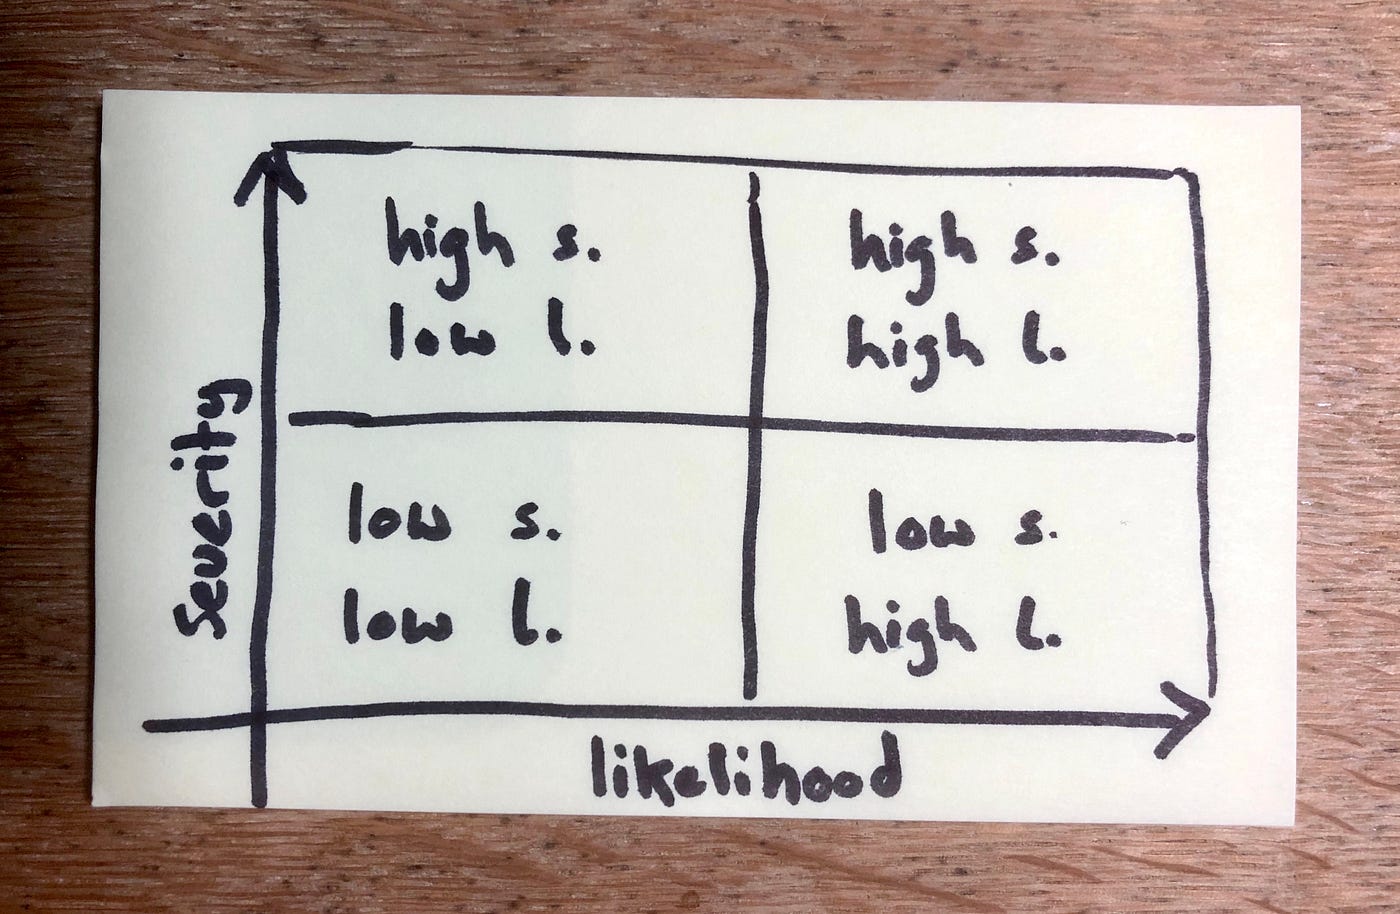 high s.
low l.
high s.
high l.
Severity
low s.
low l.
low s.
high l.
likelihood